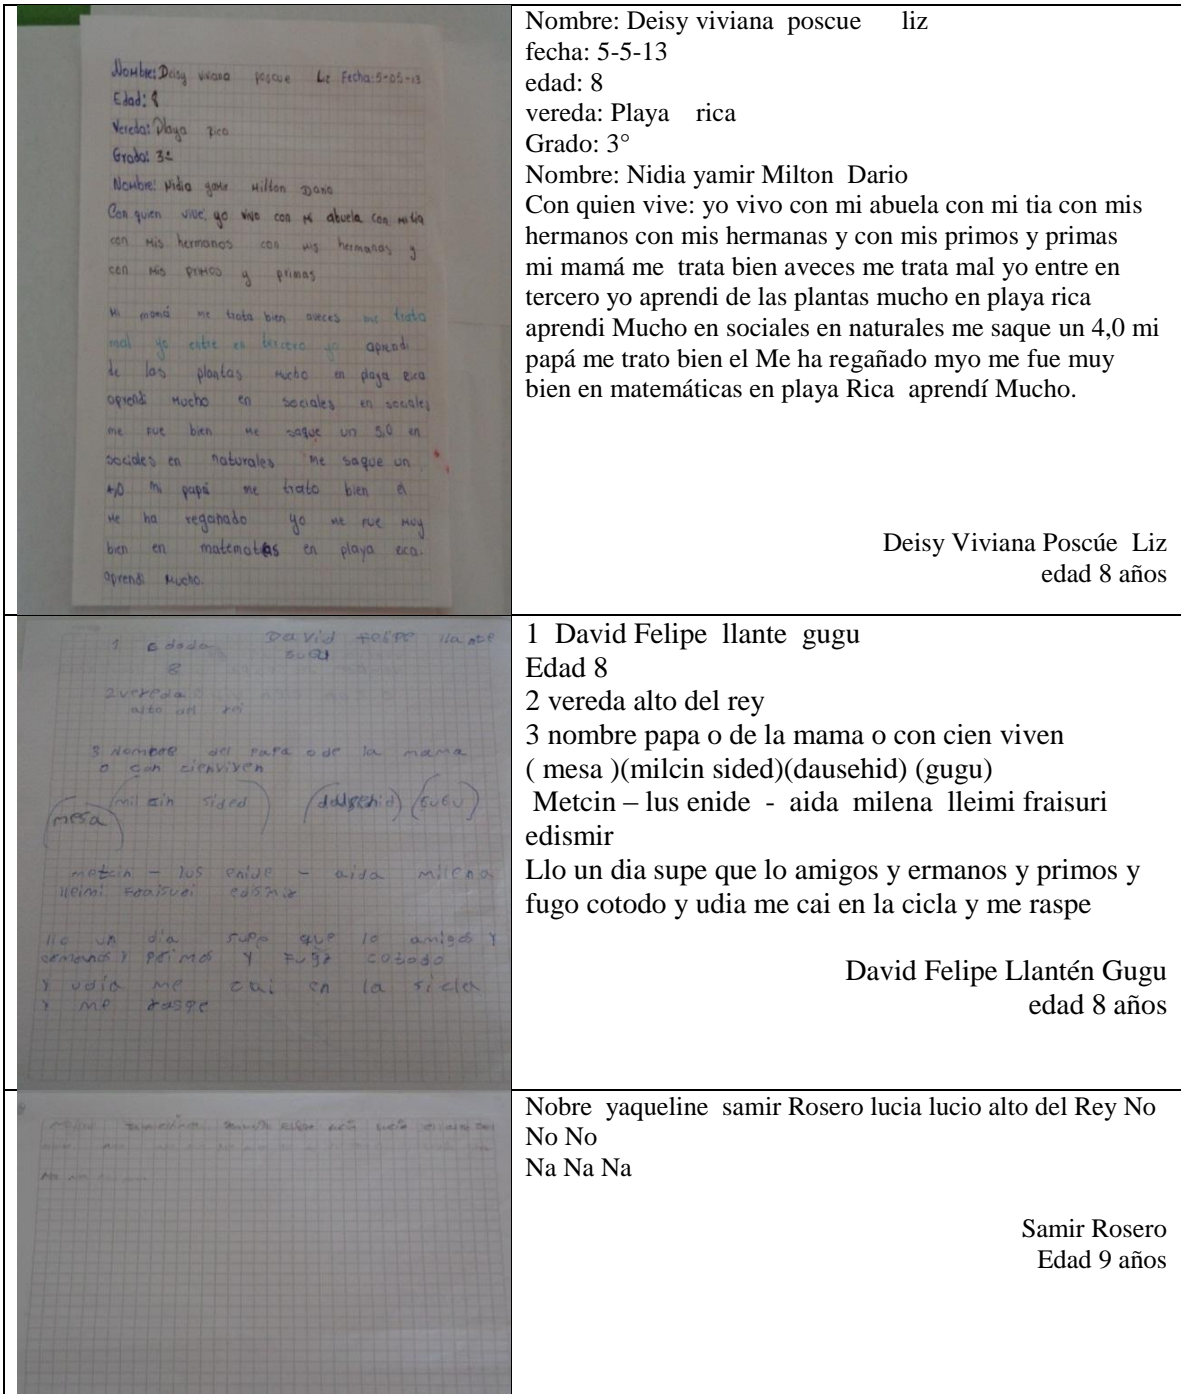 Nombre: Deisy viviana poscue Liz Fecha: 5-05-13
Edad: 8
Vereda: Playa rica
Grado: 3°
Nombre: Nidia Milton Dario
Con quien vive: yo vivo con mi abuela con mi tia
con mis hermanos con mis hermanas y
con mis primos y primas
Mi mamá me trata bien aveces me trata
mal yo entre en tercero yo aprendi
de las plantas mucho en playa rica
aprendi Mucho en sociales en sociales
me fue bien me saque un 5,0 en
sociales en naturales me saque un
4,0 mi papá me trato bien el
Me ha regañado yo me fue muy
bien en en playa rica.
aprendi Mucho.
Nombre: Deisy viviana poscue liz
fecha: 5-5-13
edad: 8
vereda: Playa rica
Grado: 3°
Nombre: Nidia yamir Milton Dario
Con quien vive: yo vivo con mi abuela con mi tia con mis
hermanos con mis hermanas y con mis primos y primas
mi mamá me trata bien aveces me trata mal yo entre en
tercero yo aprendi de las plantas mucho en playa rica
aprendi Mucho en sociales en naturales me saque un 4,0 mi
papá me trato bien el Me ha regañado myo me fue muy
bien en matemáticas en playa Rica aprendí Mucho.
Deisy Viviana Poscúe Liz
edad 8 años
1 edada David felpe llante
gugu
8
2 vereda
alto del rei
3 Nombre del papa o de la mama
o con cienviven
(mesa) (milcin sided) (gugu)
metcin – lus enide – aida milena
lleimi edismir
llo un dia supe que lo amigos y
ermanos y primos y fugo cotodo
y udia me cai en la sicla
y me raspe
1 David Felipe llante gugu
Edad 8
2 vereda alto del rey
3 nombre papa o de la mama o con cien viven
( mesa )(milcin sided)(dausehid) (gugu)
Metcin – lus enide - aida milena lleimi fraisuri
edismir
Llo un dia supe que lo amigos y ermanos y primos y
fugo cotodo y udia me cai en la cicla y me raspe
David Felipe Llantén Gugu
edad 8 años
Nobre yaqueline samir Rosero lucia lucio alto del Rey No
No No
Na Na Na
Samir Rosero
Edad 9 años